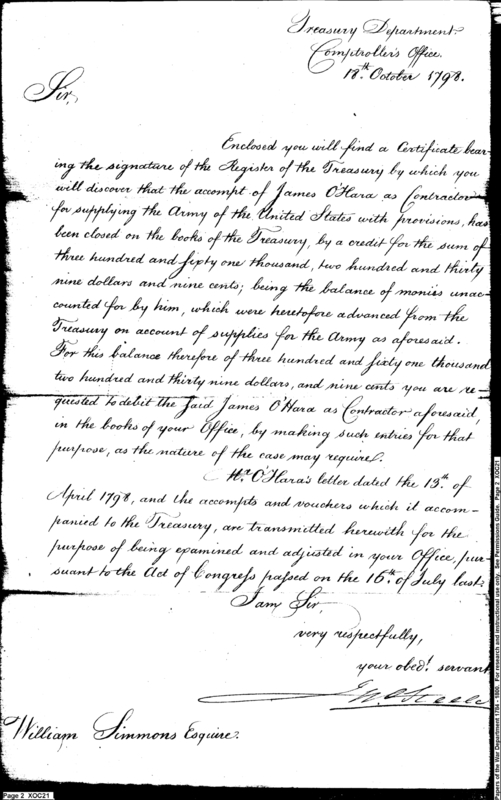 Treasury Department.
Comptroller's Office.
18th October 1798.
Sir,
Enclosed you will find a Certificate bear-
ing the signature of the Register of the Treasury by which you
will discover that the accompt of James O'Hara as Contractor
for supplying the Army of the United States with provisions, has
been closed on the books of the Treasury, by a credit for the sum of
three hundred and sixty one thousand, two hundred and thirty
nine dollars and nine cents; being the balance of monies unac-
counted for by him, which were heretofore advanced from the
Treasury on account of supplies for the Army as aforesaid.
For this balance therefore of three hundred and sixty one thousand
two hundred and thirty nine dollars, and nine cents you are re-
quested to debit the said James O'Hara as Contractor aforesaid,
in the books of your Office, by making such entries for that
purpose, as the nature of the case may require.
Mr. O'Hara's letter dated the 13th of
April 1798, and the accompts and vouchers which it accom-
panied to the Treasury, are transmitted herewith for the
purpose of being examined and adjusted in your Office, pur-
suant to the Act of Congress passed on the 16th of July last.
I am Sir,
very respectfully,
your obedt. servant
Jno. Steele
William Simmons Esquire.
Page 2 XOC21
Papers of the War Department 1784 - 1800. For research and instructional use only. See Permissions Guide. Page 2 XOC21